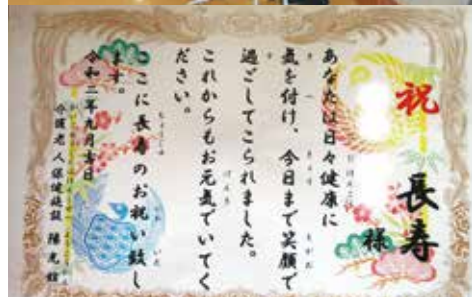 祝 長寿
様
あなたは日々健康に
気を付け、今日まで笑顔で
過ごしてこられました。
これからもお元気でいてく
ださい。
ここに長寿のお祝い致し
ます。
令和二年九月吉日
介護老人保健施設 陽光館